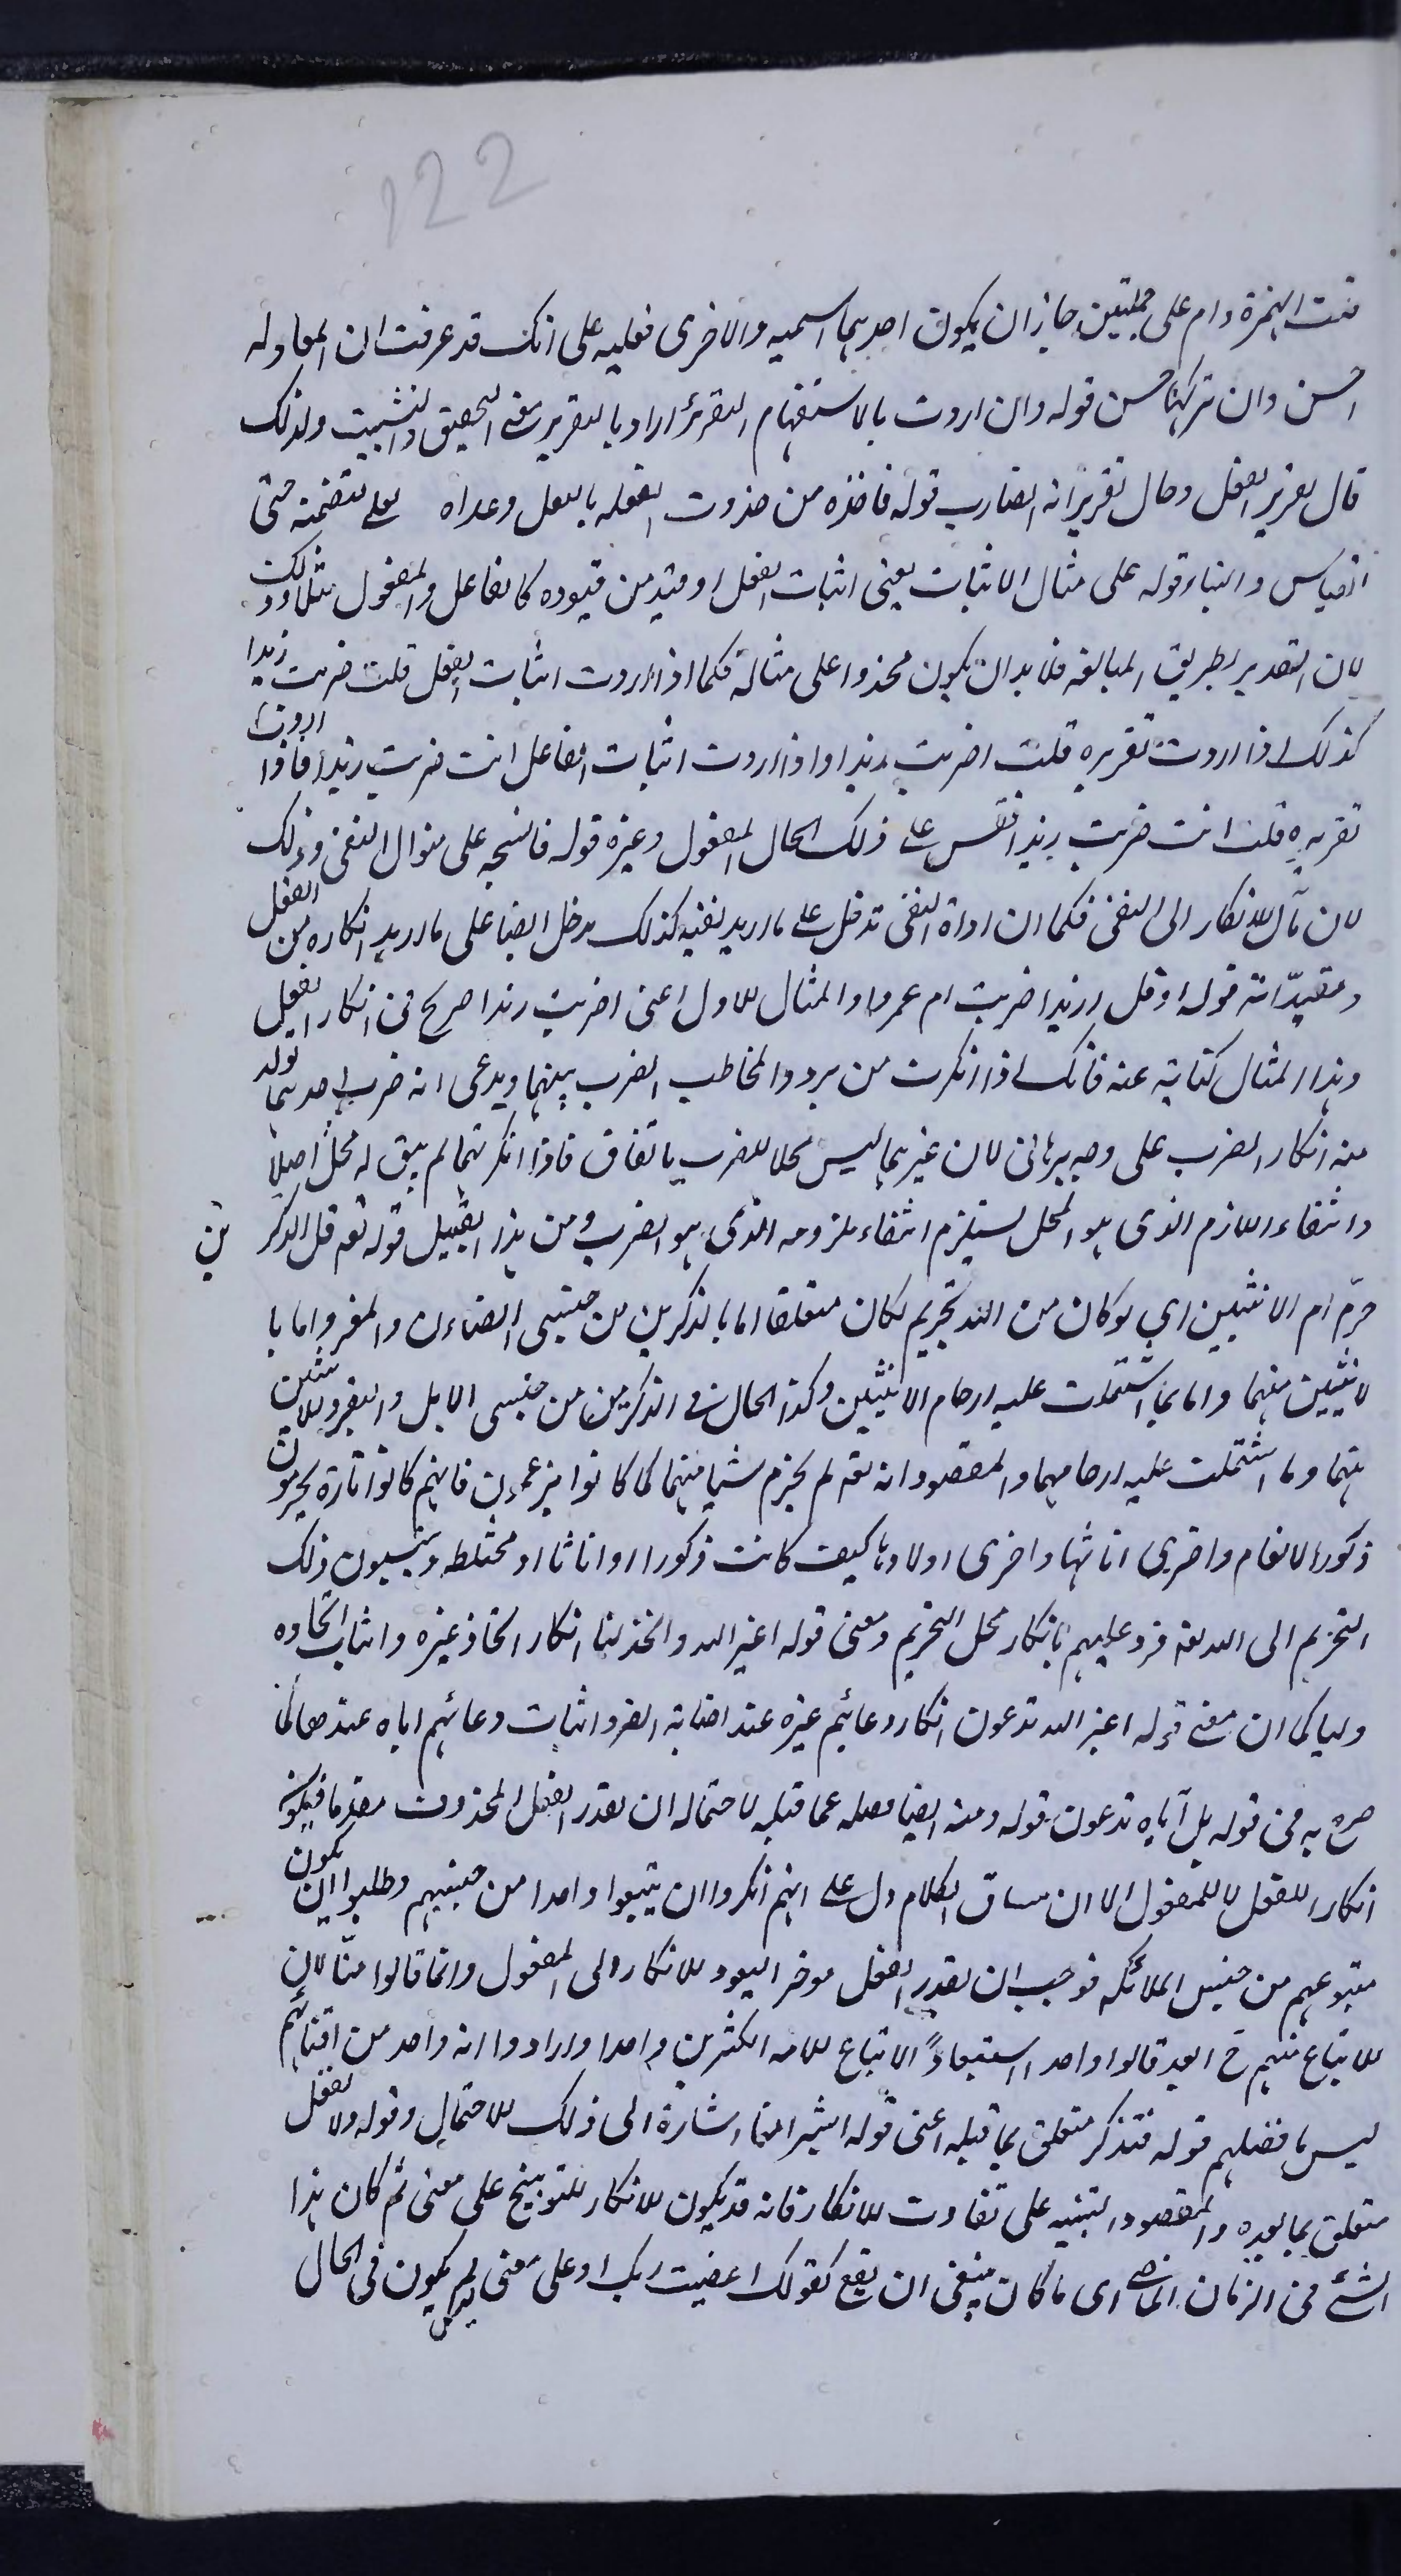 122
متت الهمزة وام على جملتين جاز ان يكون احديهما اسمية والاخرى فعلية على انك قد عرفت ان المعادلة
احسن وان تركها حسن قوله وان اردت بالاستفهام التقرير اراد بالتقرير معنى التحقيق والتثبيت ولذلك
قال تقرير الفعل وحال تقرير انه الضارب قوله فاحذه من حذوت النعل بالنعل وعداه بعلى لتضمنه معنى
القياس والبناء قوله على مثال الاثبات يعنى اثبات الفعل او قيد من قيوده كالفاعل والمفعول مثلا وذلك
لان التقرير بطريق المبالغة فلا بد ان يكون محذوا على مثاله فكما اذا اردت اثبات الفعل قلت ضربت زيدا
كذلك اذا اردت تقريره قلت اضربت زيدا واذا اردت اثبات الفاعل انت ضربت زيدا فاذا اردت
تقريره قلت اانت ضربت زيدا فقس على ذلك الحال المفعول وغيره قوله فانسجه على منوال النفى وذلك
لان مآل الانكار الى النفى فكما ان اداة النفى تدخل على ما اريد نفيه كذلك يدخل ايضا على ما اريد انكاره من الفعل
ومقيداته قوله او قل ازيدا ضربت ام عمروا والمثال الاول اعنى اضربت زيدا صريح فى انكار الفعل
وهذا المثال كناية عنه فانك اذا انكرت من يردد المخاطب الضرب بينهما ويدعى انه ضرب احدهما تولد
منه انكار الضرب على وجه برهانى لان غيرهما ليس محلا للضرب باتفاق فاذا انكرتهما لم يبق له محل اصلا
وانتفاء اللازم الذى هو المحل يستلزم انتفاء ملزومه الذى هو الضرب ومن هذا القبيل قوله تعه قل الذكر ين
حرّم ام الانثيين اى لو كان من الله تحريم لكان متعلقا اما بالذكرين من جنسى الضأن والمعز واما با
لانثيين منهما واما بما اشتملت عليه ارحام الانثيين وكذا الحال فى الذكرين من جنسى الابل والبقر والانثيين
منهما وما اشتملت عليه ارحامهما والمقصود انه تعه لم يحرم شيئا منهما كما كانوا يزعمون فانهم كانوا تارة يحرمون
ذكور الانعام واخرى اناثها واخرى اولادها كيف كانت ذكورا او اناثا او مختلطة وينسبون ذلك
التحريم الى الله تعه فرد عليهم بانكار محل التحريم ومعنى قوله اغير الله واتخذ لنا انكار اتخاذ غيره واثبات اتخاذه
وليا كما ان معنى قوله اغير الله تدعون انكار دعائهم غيره عند اصابة الضر واثبات دعائهم اياه عندها كما
صرح به فى قوله بل اياه تدعون قوله ومنه ايضا فصله عما قبله لاحتماله ان يقدر الفعل المحذوف مقدما فيكون
انكارا للفعل لا للمفعول الا ان مساق الكلام دل على انهم انكروا ان يتبعوا واحدا من جنسهم وطلبوا ان يكون
متبوعهم من جنس الملائكة فوجب ان يقدر الفعل موخرا ليعود الانكار الى المفعول وانما قالوا منّا لان
الاتباع منهم ح ابعد قالوا واحد استبعادا لاتباع الامة الكثيرين واحدا وارادوا انه واحد من افنائهم
ليس بافضلهم قوله فتذكر متعلق بما قبله اعنى قوله ابشرا منا اشارة الى ذلك الاحتمال وقوله ولا تغفل
متعلق بما بعده والمقصود التنبيه على تفاوت الانكار فانه قد يكون الانكار للتوبيخ على معنى لم كان هذا
الشئ فى الزمان الماضى اى ما كان ينبغى ان يقع كقولك اعصيت ربك او على معنى لم يكون فى الحال